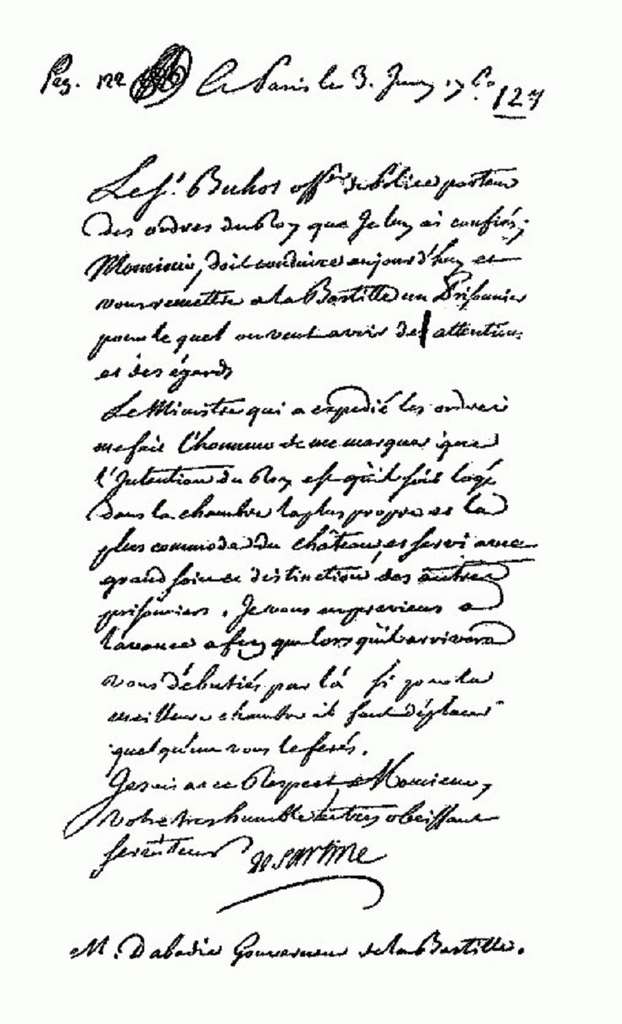 Peg. 122 A Paris le 3. Janv 17
127
Le Sr. Buhot offer de Police porteur
des ordres du Roy que Je luy ai confiés,
Monsieur, doit conduire aujourd'huy et
vous remettre a la Bastille un Prisonier
pour le quel on veut avoir des attentions
et des égards
Le Ministre qui a expedié les ordres
me fait l'honneur de me marquer que
l'Intention du Roy est qu'il soit logé
dans la chambre la plus propre et la
plus commode du château, et servi avec
grand soin et distinction des autres
prisonniers. Je vous en previens a
lavance afin que lors qu'il arrivera
vous débutiés par là si pour la
meilleure chambre il faut déplacer
quelqu'un vous le ferés.
Je suis avec Respect Monsieur,
Votre tres humble et tres obeissant
serviteur De Sartine
M. Dabadie Gouverneur de la Bastille.